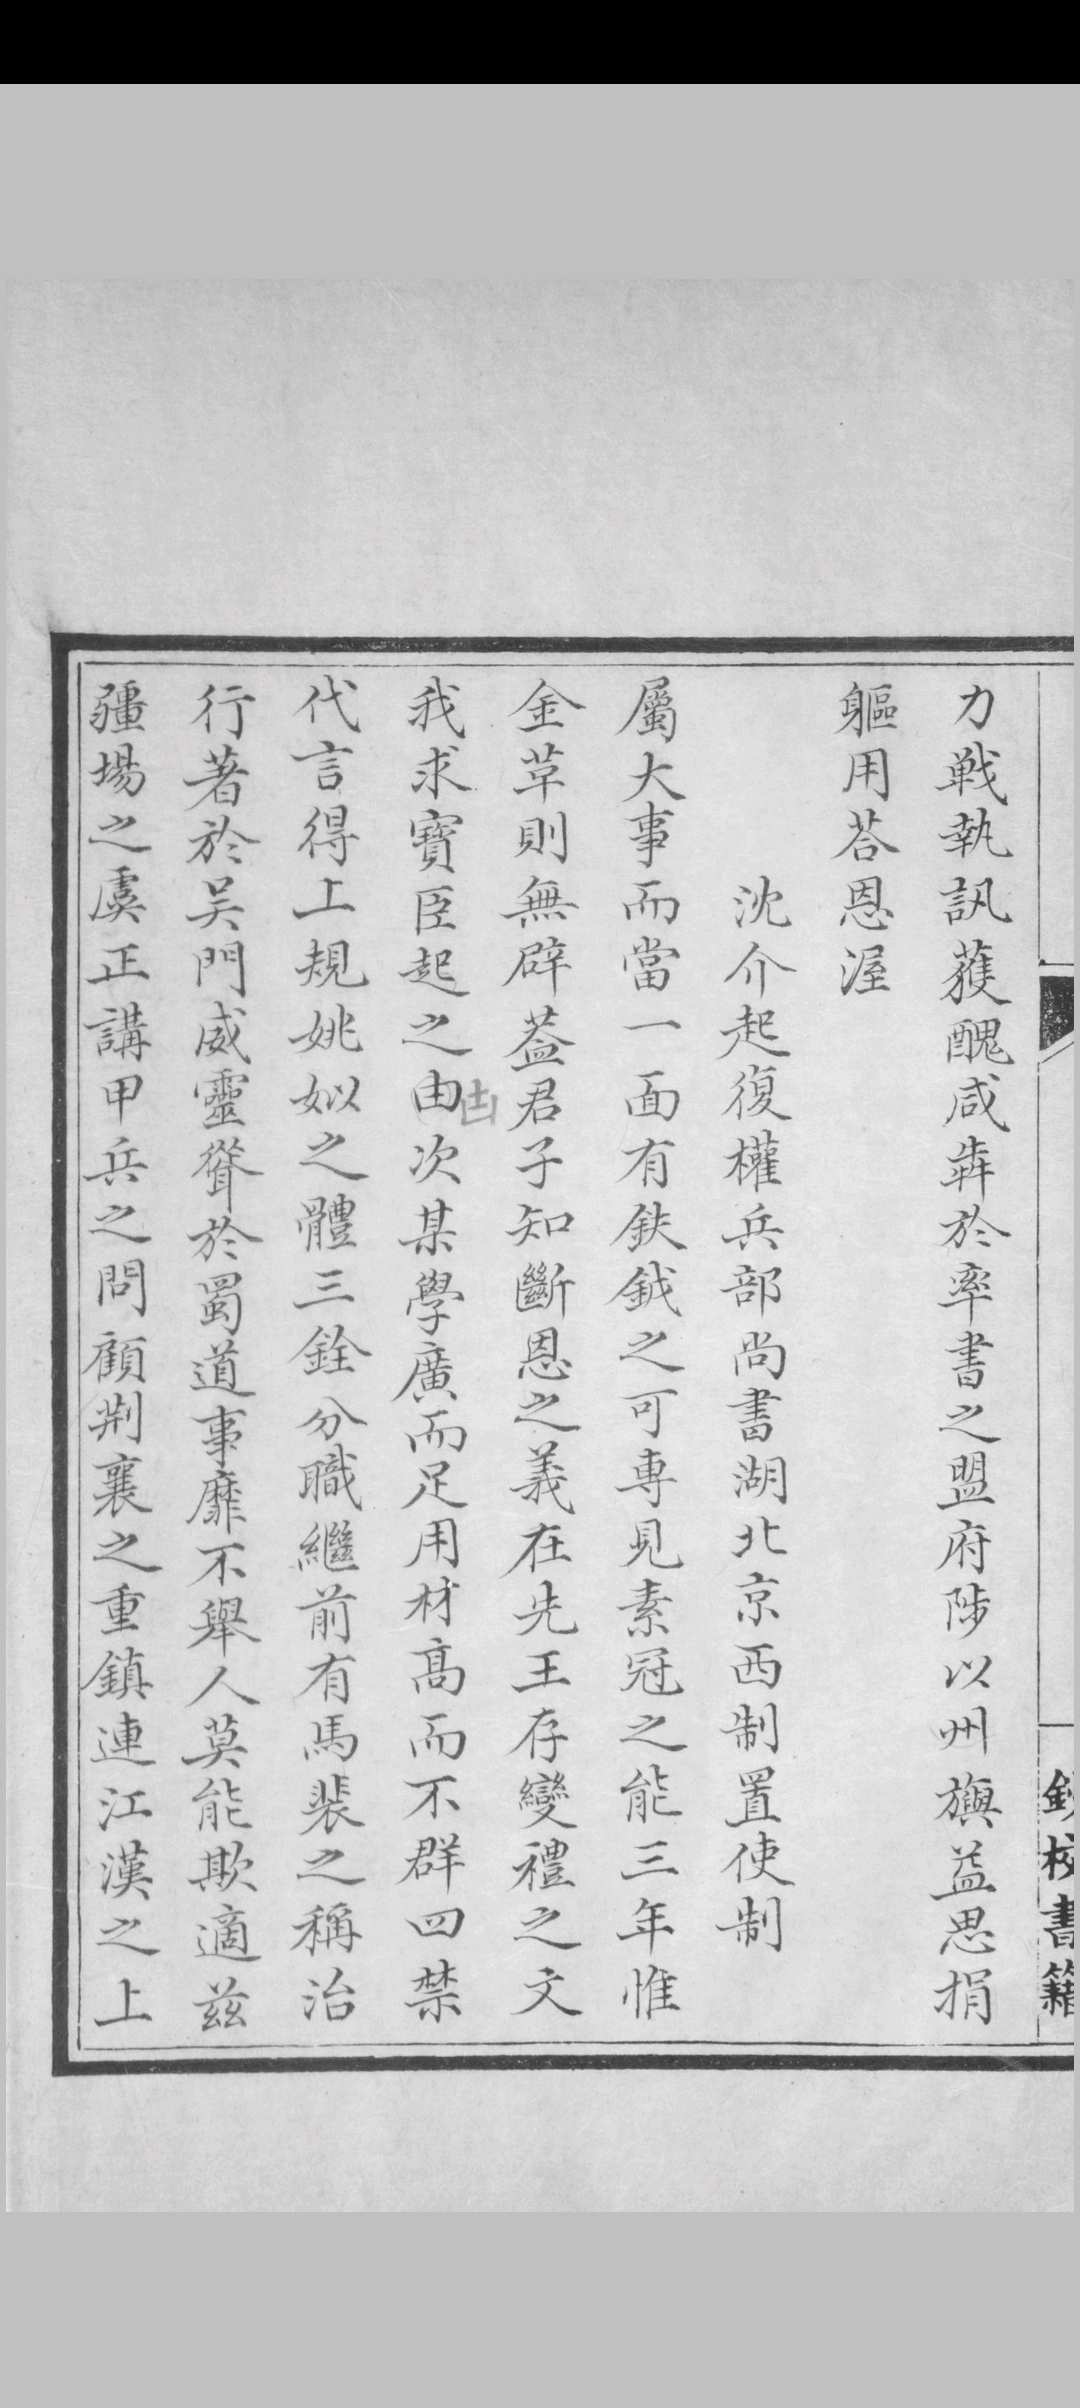 鈔校書籍
力戰執訊獲醜咸犇於率書之盟府陟以州旟益思捐
軀用荅恩渥
沈介起復權兵部尚書湖北京西制置使制
屬大事而當一面有鈇鉞之可專見素冠之能三年惟
金草則無辟葢君子知斷恩之義在先王存變禮之文
我求寶臣起之由次某學廣而足用材高而不群四禁
凷
代言得上規姚姒之體三銓分職繼前有馬裴之稱治
行著於吴門威靈聳於蜀道事靡不舉人莫能欺適兹
疆埸之虞正講甲兵之問顧荆襄之重鎮連江漢之上